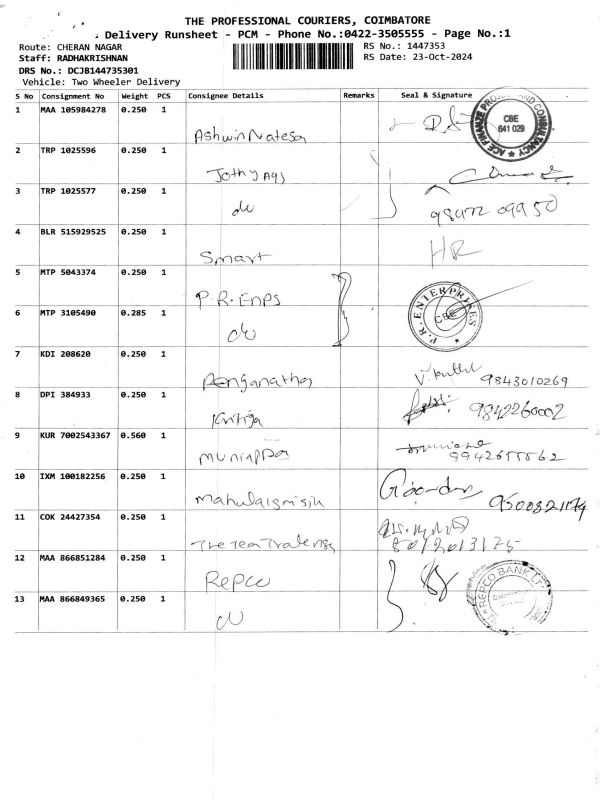 THE PROFESSIONAL COURIERS, COIMBATORE
Delivery Runsheet - PCM - Phone No.:0422-3505555 - Page No.:1
Route: CHERAN NAGAR
RS No.: 1447353
Staff: RADHAKRISHNAN
RS Date: 23-Oct-2024
DRS No.: DCJB144735301
Vehicle: Two Wheeler Delivery
S No Consignment No Weight PCS Consignee Details Remarks Seal & Signature
1 MAA 105984278 0.250 1
Ashwin Natesa
ACE FINANZE PRO AND CONSULTANCY
CBE
641 029
2 TRP 1025596 0.250 1
Jothy Ags
3 TRP 1025577 0.250 1
do
98472 09950
4 BLR 515929525 0.250 1
Smart
HR
5 MTP 5043374 0.250 1
P.R. Enps
6 MTP 3105490 0.285 1
do
P.R. ENTERPRISES
CBE
7 KDI 208620 0.250 1
Renganatha
9843010269
8 DPI 384933 0.250 1
Kritiga
9842260002
9 KUR 7002543367 0.560 1
Muniappa
9942655562
10 IXM 100182256 0.250 1
9500821179
11 COK 24427354 0.250 1
The Tea Tradengs
8012013175
12 MAA 866851284 0.250 1
Repco
REPCO BANK LT
13 MAA 866849365 0.250 1
do